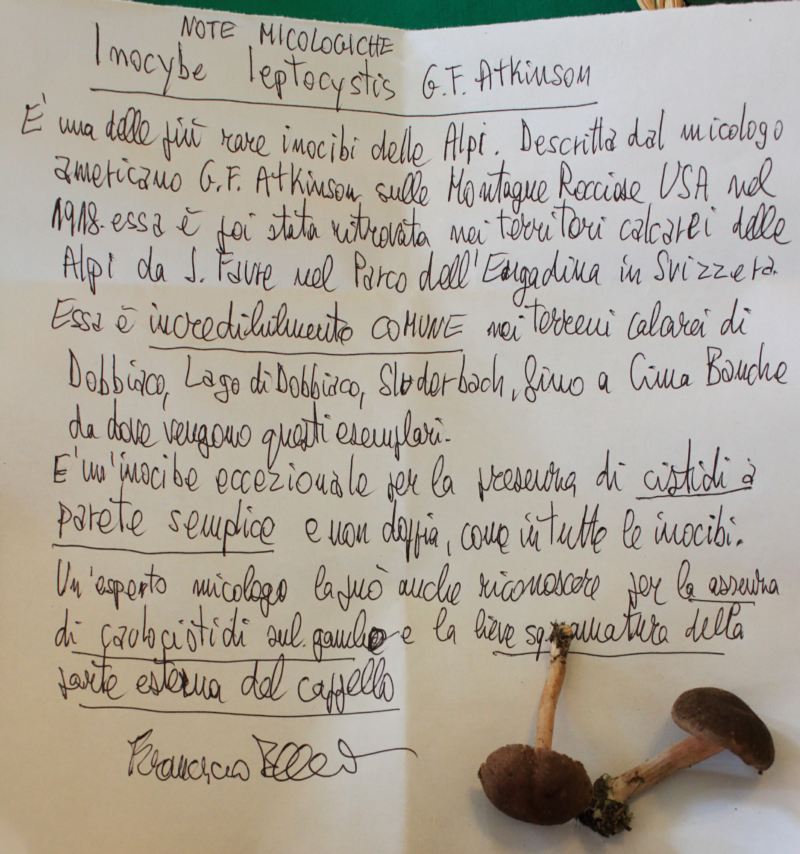 NOTE MICOLOGICHE
Inocybe leptocystis G.F. Atkinson
E' una delle più rare inocibi delle Alpi. Descritta dal micologo
americano G.F. Atkinson sulle Montagne Rocciose USA nel
1918. essa è poi stata ritrovata nei territori calcarei delle
Alpi da J. Favre nel Parco dell'Engadina in Svizzera.
Essa è incredibilmente COMUNE nei terreni calcarei di
Dobbiaco, Lago di Dobbiaco, Sluderbach, fino a Cima Banche
da dove vengono questi esemplari.
E' un'inocibe eccezionale per la presenza di cistidi a
parete semplice e non doppia, come in tutte le inocibi.
Un'esperto micologo la può anche riconoscere per la assenza
di caulocistidi sul gambo e la lieve squamatura della
parte esterna del cappello
Francesco